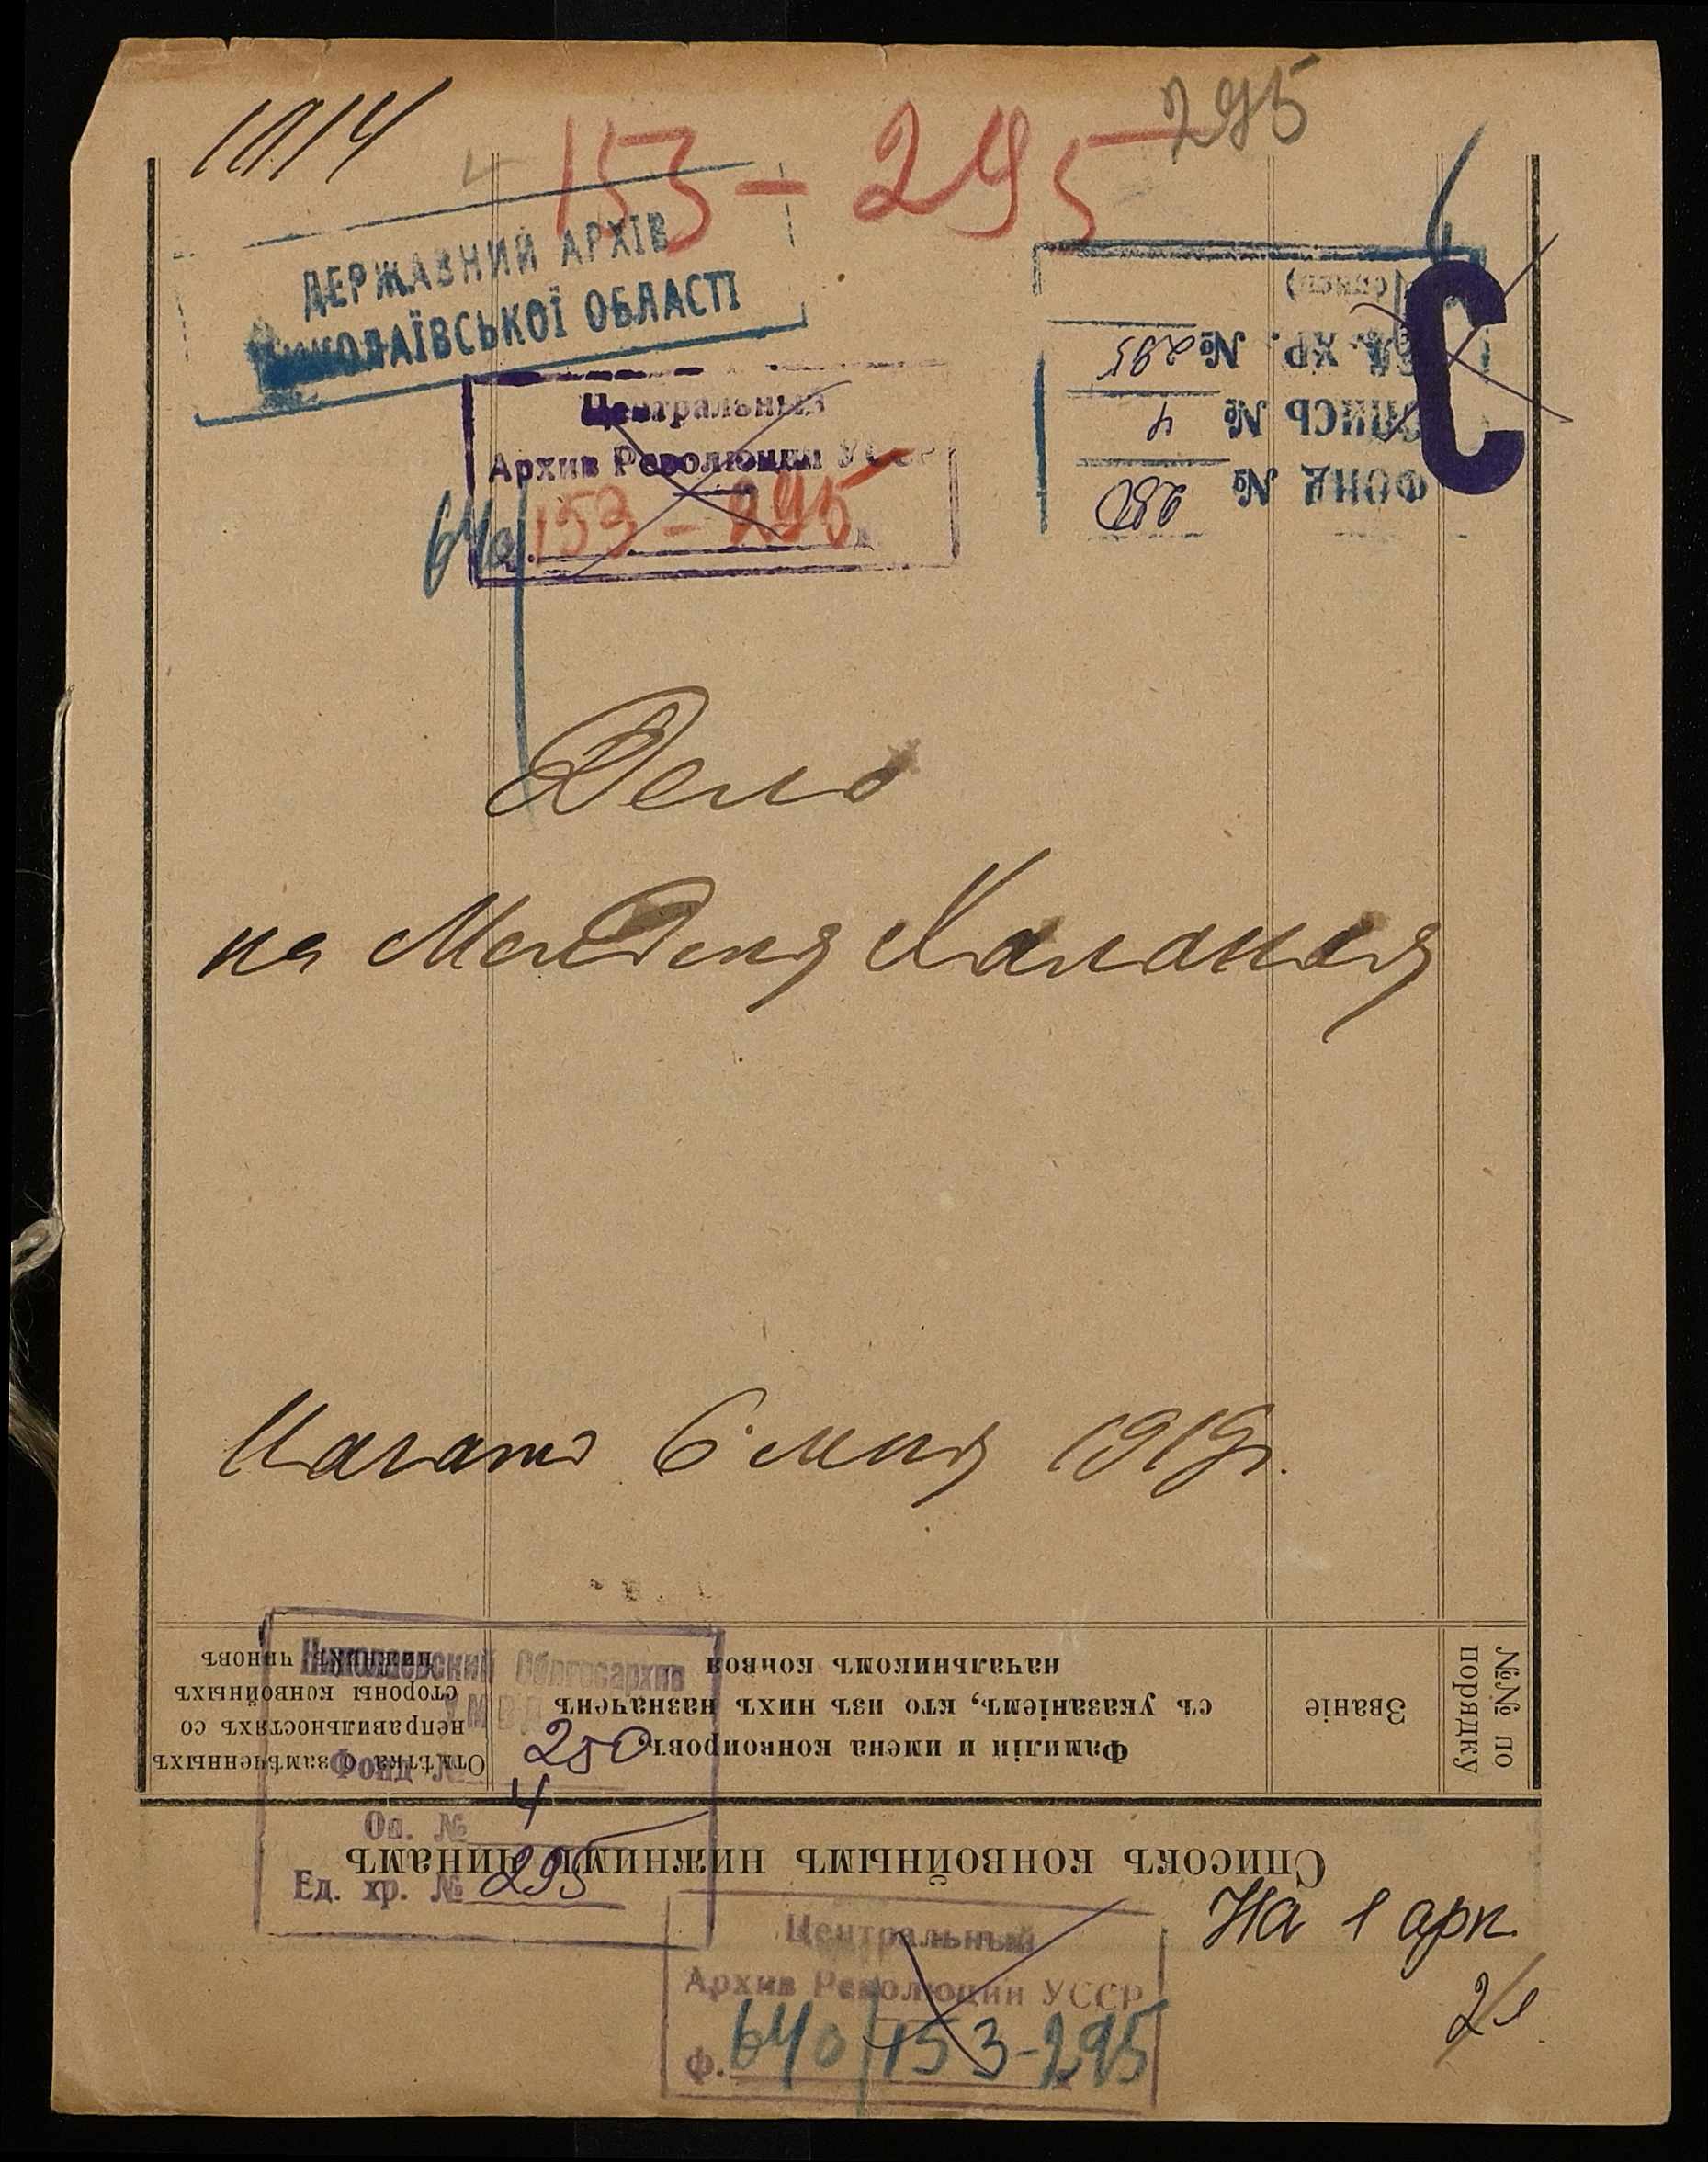 1914
153-295
295
ДЕРЖАВНИЙ АРХІВ
МИКОЛАЇВСЬКОЇ ОБЛАСТІ
ФОНД № 250
опись № 4
ед. хр. № 295
(описи)
С
Центральный
Архив Революции УССР
640 153-295
Дело
на
Начато 6 мая 1919 г.
Списокъ конвойнымъ нижнимъ чинамъ
№№ по порядку
Званіе
Фамиліи и имена конвоировъ
съ указаніемъ, кто изъ нихъ назначенъ
начальникомъ конвоя
Отмѣтка о замѣченныхъ
неправильностяхъ со
стороны конвойныхъ
нижнихъ чиновъ
Николаевский Облгосархив
УМВД
Фонд № 250
Оп. № 4
Ед. хр. № 295
На 1 арк.
Центральный
Архив Революции УССР
Ф. 640/153-295